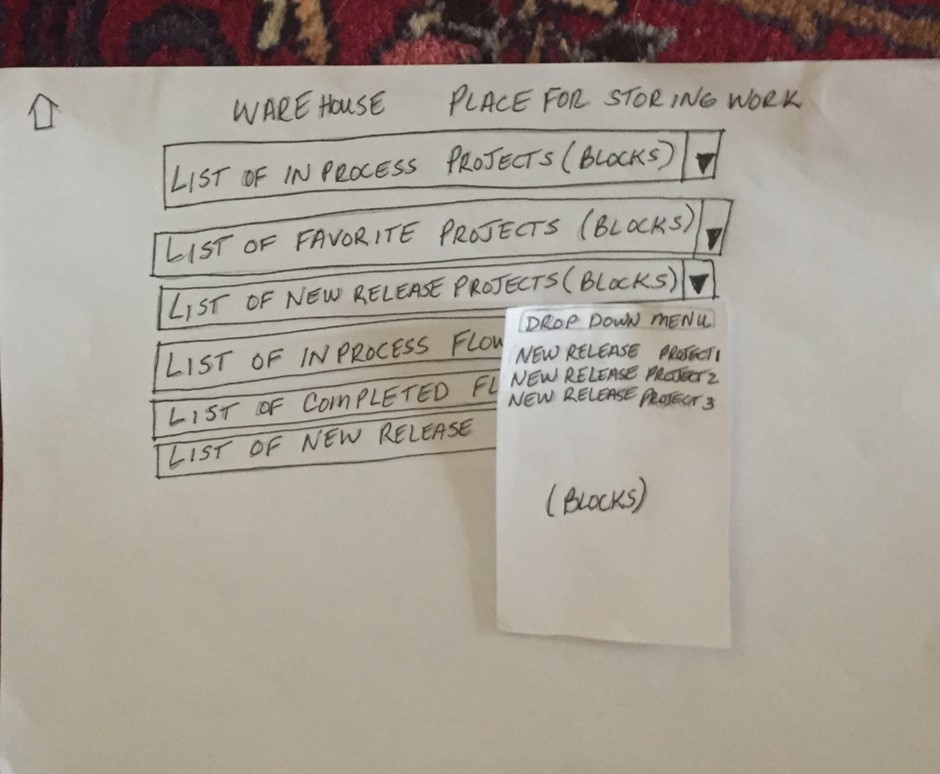 WAREHOUSE PLACE FOR STORING WORK
LIST OF IN PROCESS PROJECTS (BLOCKS)
LIST OF FAVORITE PROJECTS (BLOCKS)
LIST OF NEW RELEASE PROJECTS (BLOCKS)
LIST OF IN PROCESS FLOW
LIST OF COMPLETED FL
LIST OF NEW RELEASE
DROP DOWN MENU
NEW RELEASE PROJECT 1
NEW RELEASE PROJECT 2
NEW RELEASE PROJECT 3
(BLOCKS)